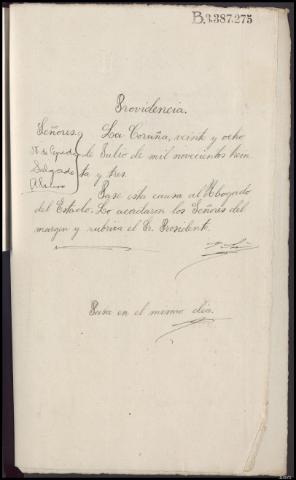 B.3.387.275
Providencia.
Señores. La Coruña, veinte y ocho
de Julio de mil novecientos trein
Salgado ta y tres.
Pase esta causa al Abogado
del Estado. Lo acordaron los Señores del
margen y rubrica el Sr. Presidente.
Pasa en el mismo día.